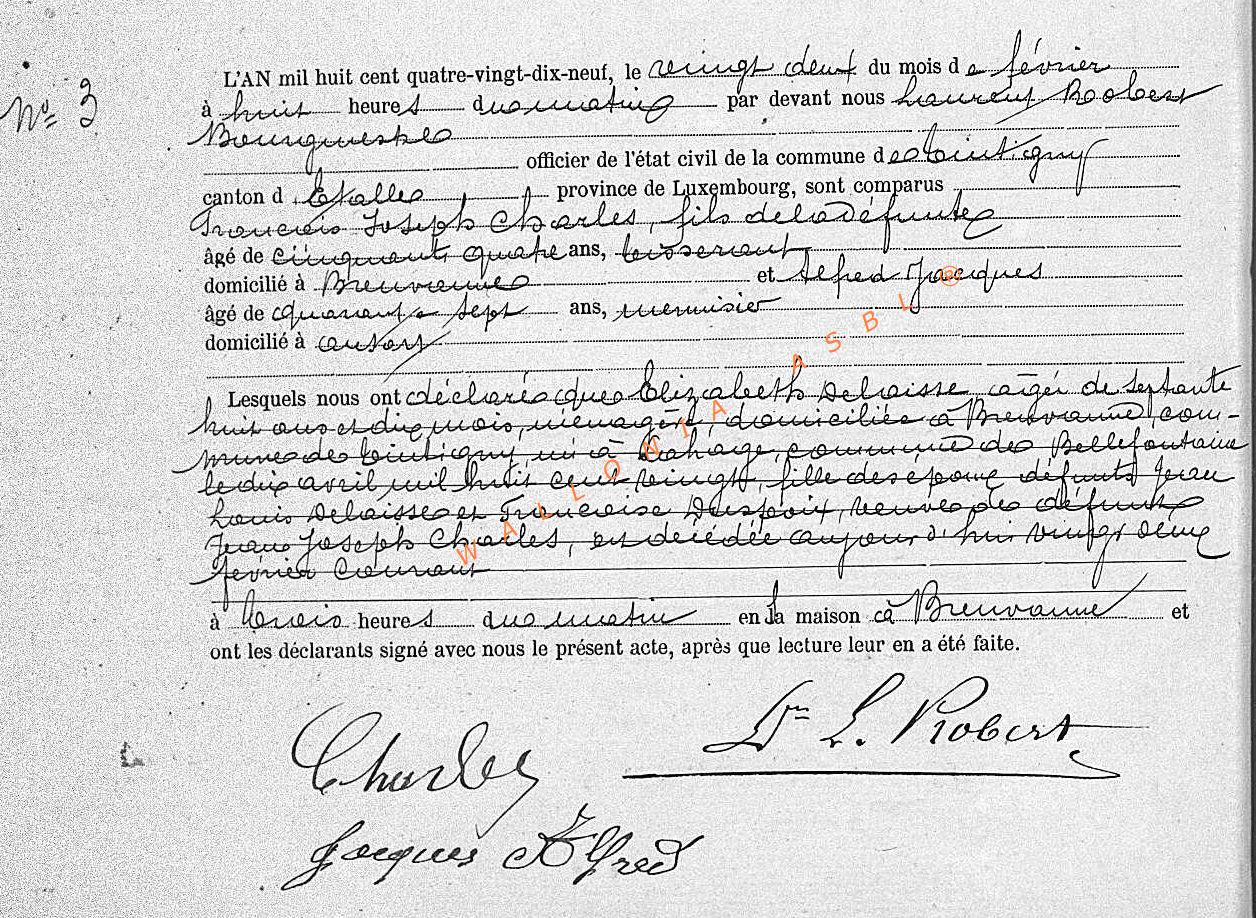 N° 3
L'AN mil huit cent quatre-vingt-dix-neuf, le vingt deux du mois de février
à huit heures du matin par devant nous Laurent Robert
Bourgmestre
officier de l'état civil de la commune de Tintigny
canton d'Etalle, province de Luxembourg, sont comparus
François Joseph Charles, fils de la défunte
âgé de cinquante quatre ans,
domicilié à Breuvanne et Alfred Jacques
âgé de quarante sept ans, menuisier
domicilié à
Lesquels nous ont déclaré que Elizabeth Delaisse âgée de septante
huit ans et dix mois, ménagère, domiciliée à Breuvanne, com-
mune de Tintigny, née à Lahage, commune de Bellefontaine
le dix avril mil huit cent vingt, fille des époux défunts Jean
Louis Delaisse et Françoise, veuve de défunt
Jean Joseph Charles, est décédée aujourd'hui vingt deux
février courant
à trois heures du matin en la maison à Breuvanne et
ont les déclarants signé avec nous le présent acte, après que lecture leur en a été faite.
Dr L. Robert
Charles
Jacques Alfred
WALLONIA ASBL ®